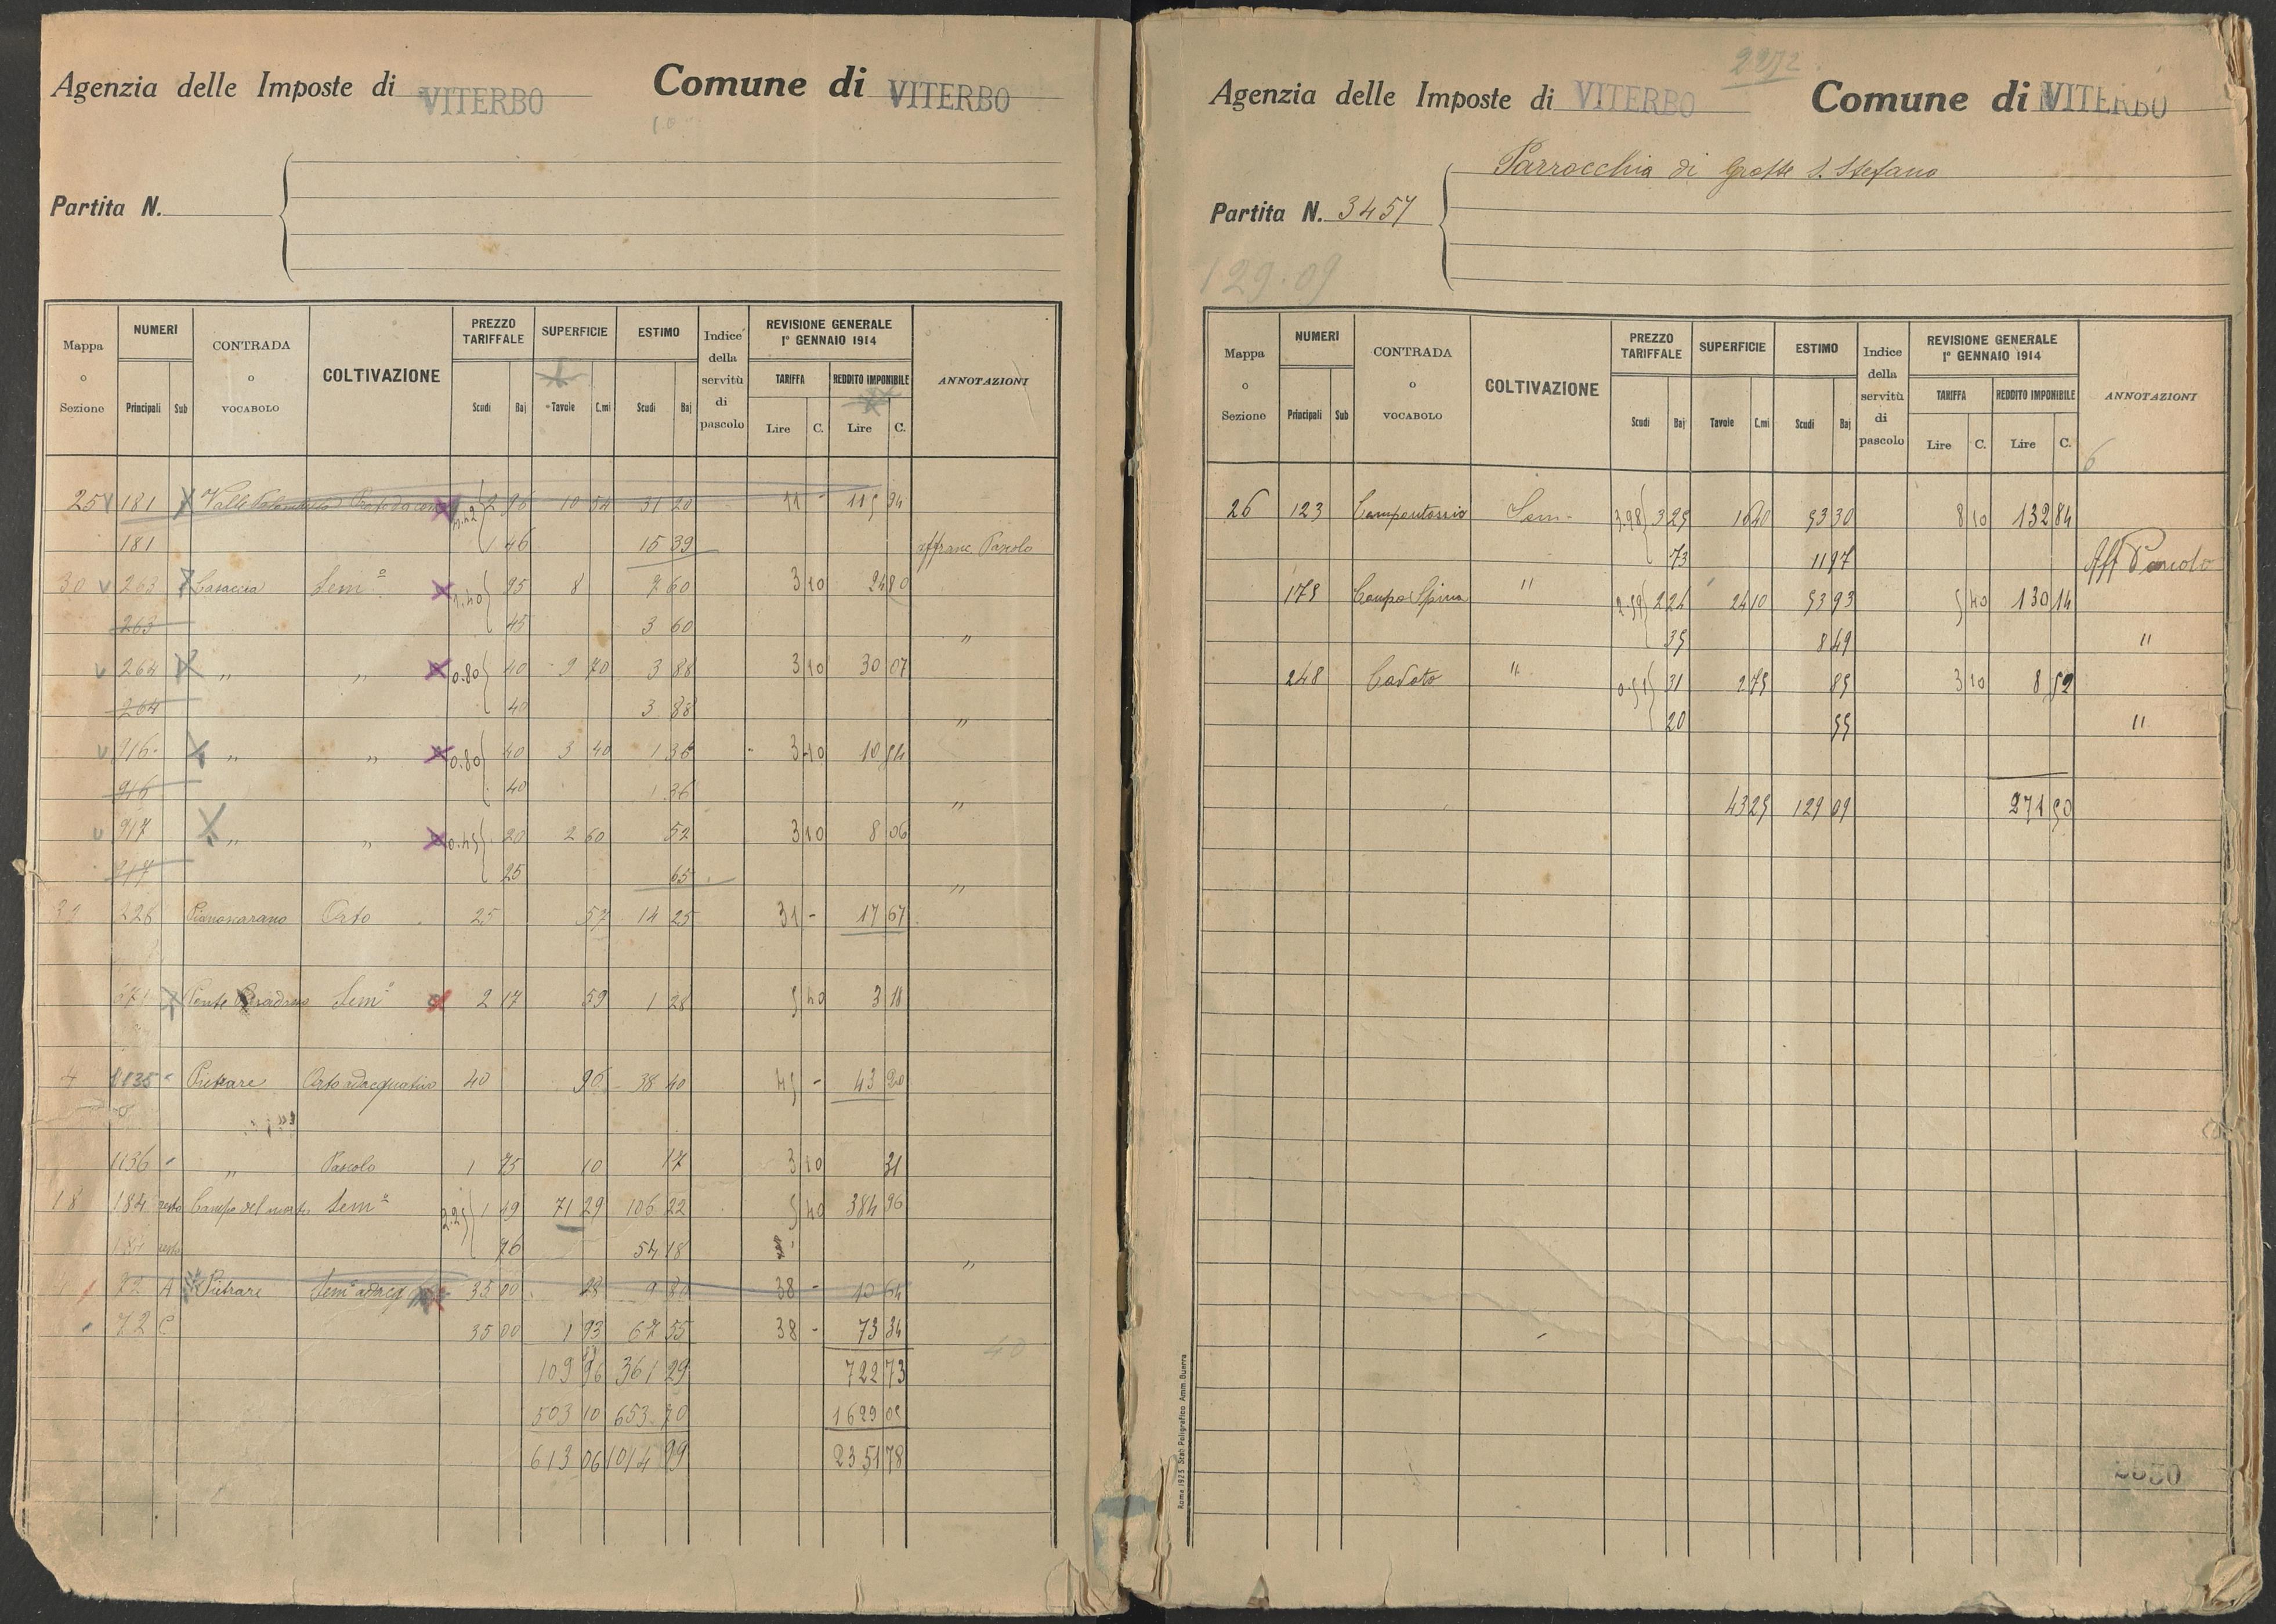 Agenzia delle Imposte di VITERBO Comune di VITERBO
Partita N.
Mappa o Sezione NUMERI Principali Sub CONTRADA o VOCABOLO COLTIVAZIONE PREZZO TARIFFALE Scudi Baj SUPERFICIE Tavole C.mi ESTIMO Scudi Baj Indice della servitù di pascolo REVISIONE GENERALE 1° GENNAIO 1914 TARIFFA Lire C. REDDITO IMPONIBILE Lire C. ANNOTAZIONI
25 181 2 96 10 54 31 20 11 - 115 94
181 1 46 15 39 affranc Pascolo
30 263 Casaccia Sem° 1.40 95 8 7 60 3 10 24 80
263 45 3 60 "
264 " " 0.80 40 9 70 3 88 3 10 30 07
264 40 3 88 "
916 " " 0.80 40 3 40 1 36 3 10 10 54
916 40 1 36 "
917 " " 0.45 20 2 60 52 3 10 8 06
917 25 65 "
226 Pianoscarano Orto 25 57 14 25 31 - 17 67
Ponte Sem° 2 17 59 1 28 5 40 3 18
4 1135 Pietrare Orto adacquativo 40 96 38 40 45 - 43 20
1136 " Pascolo 1 75 10 17 3 10 31
18 184 resto Campo del morto Sem° 2.25 1 49 71 29 106 22 5 40 384 96
184 resto 76 54 18 "
72 A Pietrare Sem° adacq 35 00 28 9 80 38 - 10 64
72 C 35 00 1 93 67 55 38 - 73 34
109 96 361 29 722 73
503 10 653 70 1629 05
613 06 1014 99 2351 78
2272
Agenzia delle Imposte di VITERBO Comune di VITERBO
Parrocchia di Grotte S. Stefano
Partita N. 3457
129.09
Mappa o Sezione NUMERI Principali Sub CONTRADA o VOCABOLO COLTIVAZIONE PREZZO TARIFFALE Scudi Baj SUPERFICIE Tavole C.mi ESTIMO Scudi Baj Indice della servitù di pascolo REVISIONE GENERALE 1° GENNAIO 1914 TARIFFA Lire C. REDDITO IMPONIBILE Lire C. ANNOTAZIONI
6
26 123 Sem. 3.98 3 25 16 40 53 30 8 10 132 84
73 11 97 Aff Pascolo
175 Campo Spina " 2.59 2 24 24 10 53 93 5 40 130 14
35 8 49 "
248 Cavato " 0.51 31 2 75 85 3 10 8 52
20 55 "
43 25 129 09 271 50
Roma 1923 Stab Poligrafico Amm. Guerra